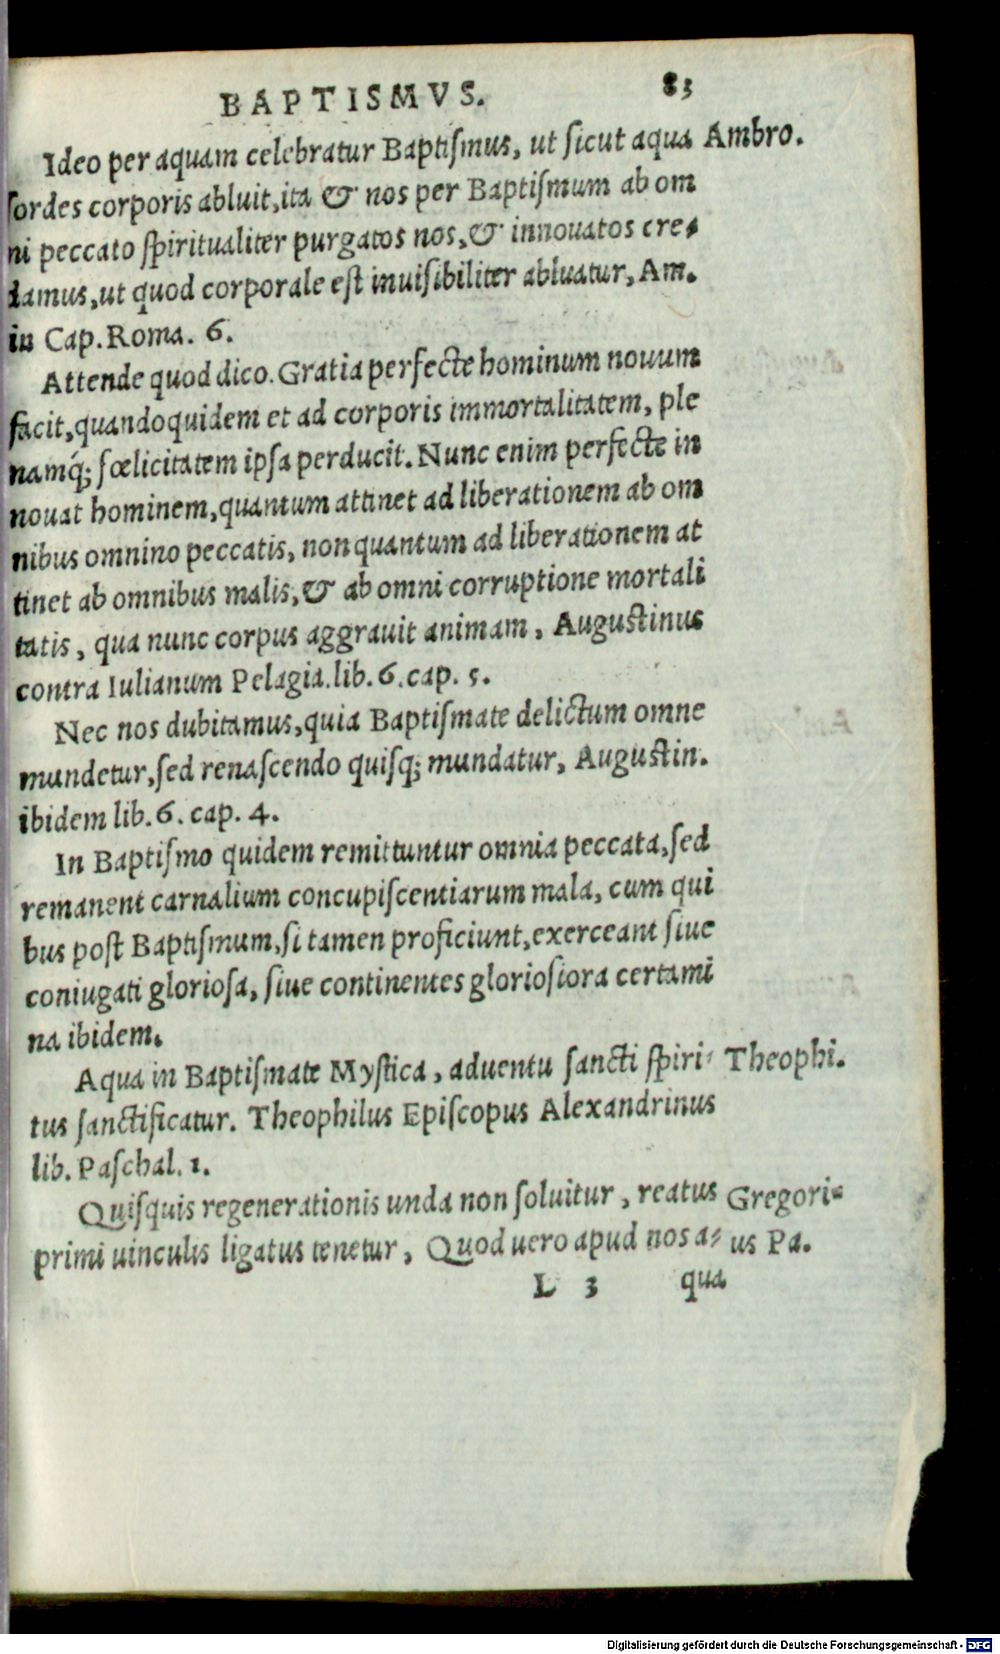 BAPTISMVS. 83
Ideo per aquam celebratur Baptiſmus, ut ſicut aqua Ambro.
ſordes corporis abluit, ita & nos per Baptiſmum ab om
ni peccato ſpiritualiter purgatos nos, & innouatos cre-
damus, ut quod corporale eſt inuiſibiliter abluatur, Am.
in Cap. Roma. 6.
Attende quod dico. Gratia perfecte hominum nouum
facit, quandoquidem et ad corporis immortalitatem, ple
namq́; fœlicitatem ipſa perducit. Nunc enim perfecte in
nouat hominem, quantum attinet ad liberationem ab om
nibus omnino peccatis, non quantum ad liberationem at
tinet ab omnibus malis, & ab omni corruptione mortali
tatis, qua nunc corpus aggrauit animam, Auguſtinus
contra Iulianum Pelagia. lib. 6. cap. 5.
Nec nos dubitamus, quia Baptiſmate delictum omne
mundetur, ſed renaſcendo quiſq; mundatur, Auguſtin.
ibidem lib. 6. cap. 4.
In Baptiſmo quidem remittuntur omnia peccata, ſed
remanent carnalium concupiſcentiarum mala, cum qui
bus poſt Baptiſmum, ſi tamen proficiunt, exerceant ſiue
coniugati glorioſa, ſiue continentes glorioſiora certami
na ibidem.
Aqua in Baptiſmate Myſtica, aduentu ſancti ſpiri- Theophi.
tus ſanctificatur. Theophilus Epiſcopus Alexandrinus
lib. Paſchal. 1.
Quiſquis regenerationis unda non ſoluitur, reatus Gregori-
primi uinculis ligatus tenetur, Quod uero apud nos a- us Pa.
L 3 qua
Digitalisierung gefördert durch die Deutsche Forschungsgemeinschaft - DFG